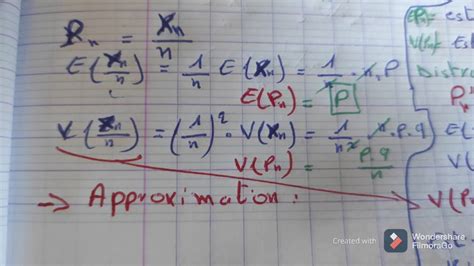 Pₙ = Xₙ/n
E(Xₙ/n) = 1/n E(Xₙ) = 1/n . n . P
E(Pₙ) = P
V(Xₙ/n) = (1/n)² . V(Xₙ) = 1/n² n . p . q
V(Pₙ) = p.q/n
→ Approximation :
E(Pₙ)= est
V(Pₙ)= Est
Distri
Pₙ
V(Pₙ
Created with
Wondershare
FilmoraGo